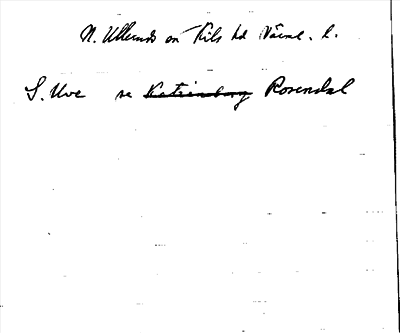 N. Ullerud sn Kils hd Värml. l.
S. Uve se Katrineberg Rosendal